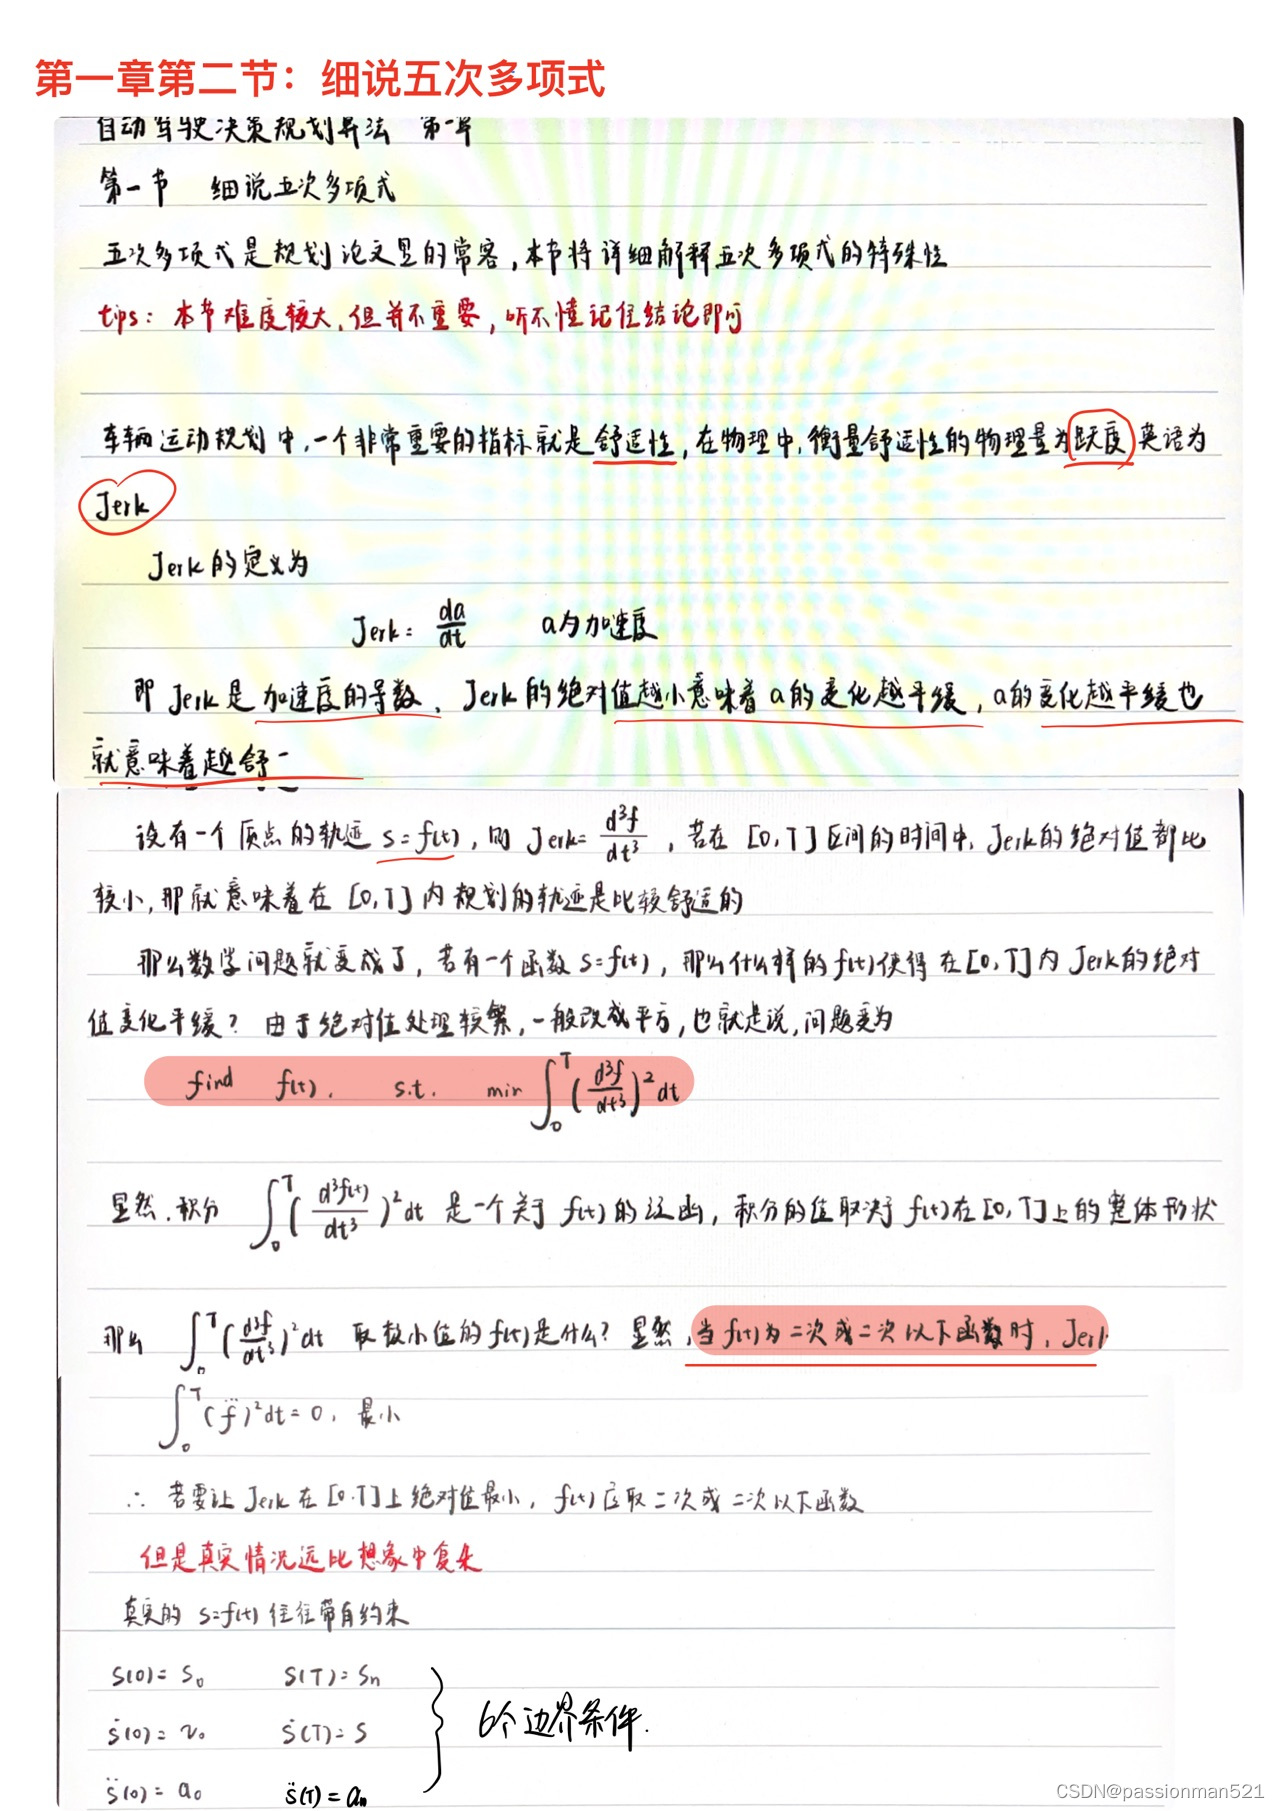 第一章第二节：细说五次多项式
自动驾驶决策规划算法 第一章
第一节 细说五次多项式
五次多项式是规划论文里的常客，本节将详细解释五次多项式的特殊性
tips：本节难度较大，但并不重要，听不懂记住结论即可
车辆运动规划中，一个非常重要的指标就是舒适性，在物理中，衡量舒适性的物理量为跃度 英语为
Jerk
Jerk的定义为
Jerk = da/dt a为加速度
即 Jerk是加速度的导数，Jerk的绝对值越小意味着a的变化越平缓，a的变化越平缓也
就意味着越舒
设有一个质点的轨迹 s=f(t)，则 Jerk= d³f/dt³，若在 [0,T] 区间的时间中，Jerk的绝对值都比
较小，那就意味着在 [0,T] 内规划的轨迹是比较舒适的
那么数学问题就变成了，若有一个函数 s=f(t)，那么什么样的f(t)使得在[0,T]内 Jerk的绝对
值变化平缓？由于绝对值处理较繁，一般改成平方，也就是说，问题变为
find f(t). s.t. min ∫₀ᵀ (d³f/dt³)² dt
显然，积分 ∫₀ᵀ (d³f(t)/dt³)² dt 是一个关于 f(t) 的泛函，积分的值取决于 f(t)在[0,T]上的整体形状
那么 ∫₀ᵀ (d³f/dt³)² dt 取极小值的f(t)是什么？显然，当f(t)为二次或二次以下函数时，Jerk
∫₀ᵀ (f⃛)² dt = 0，最小
∴ 若要让 Jerk 在 [0,T]上绝对值最小，f(t)应取二次或二次以下函数
但是真实情况远比想象中复杂
真实的 s=f(t) 往往带有约束
S(0)= S₀ S(T)= Sn
ṡ(0)= v₀ ṡ(T)= S
s̈(0)= a₀ s̈(T)= an
6个边界条件.
CSDN@passionman521